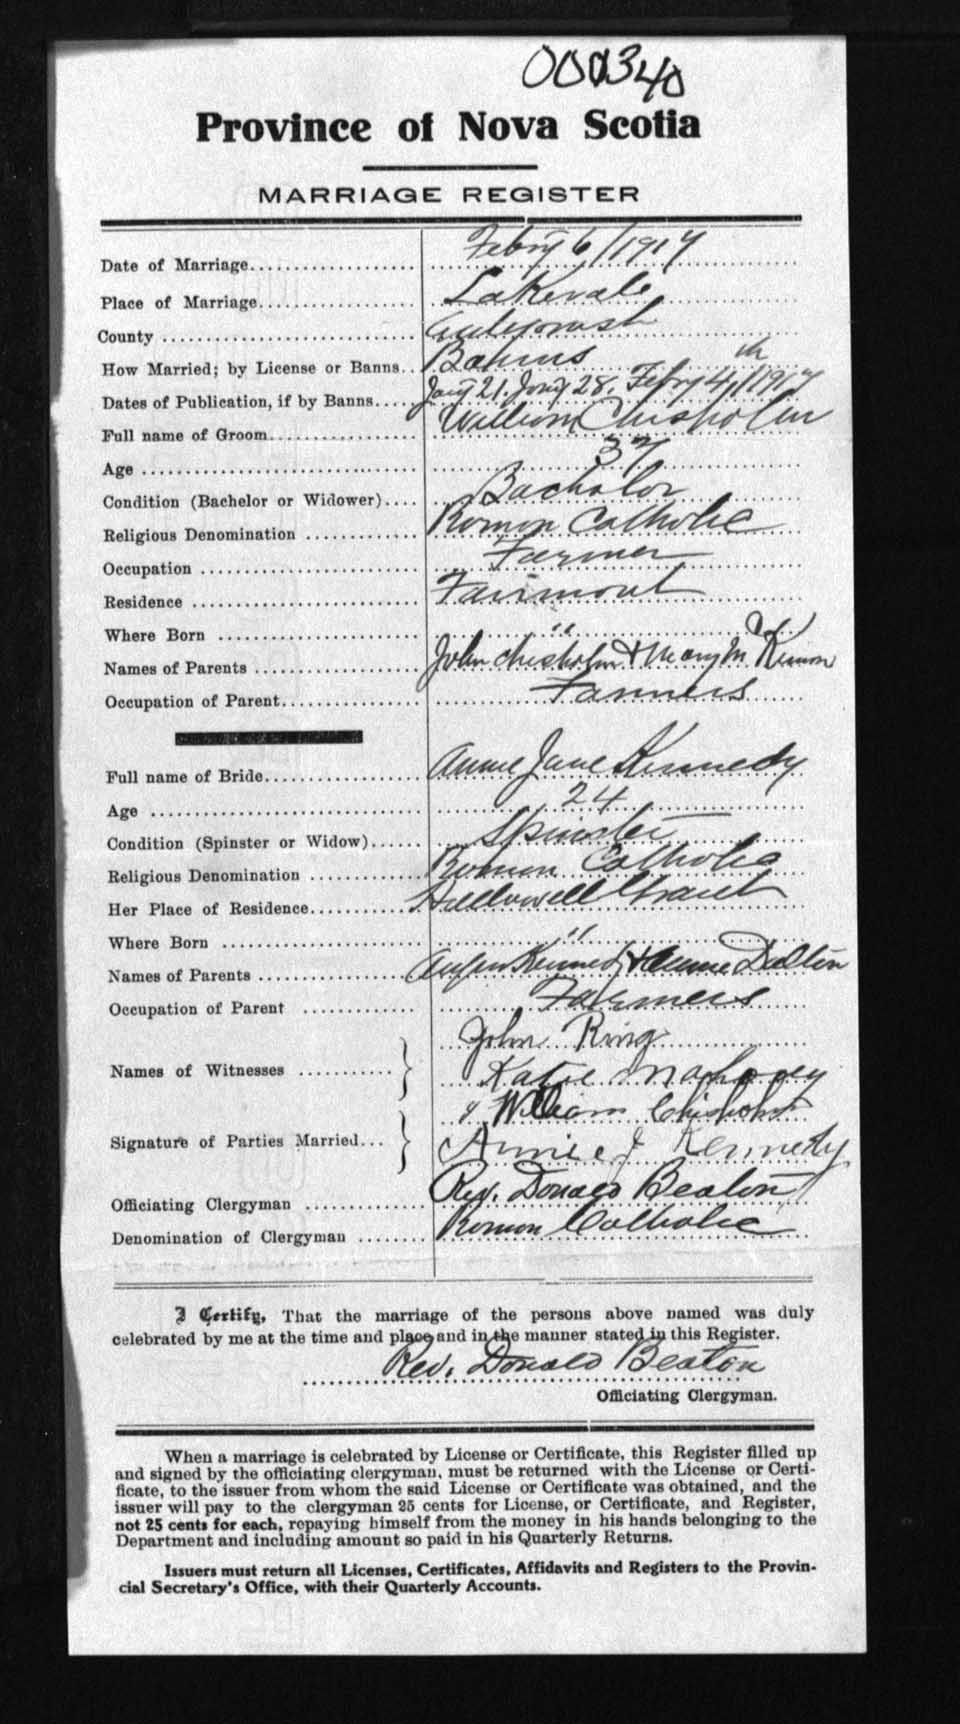 000340
Province of Nova Scotia
MARRIAGE REGISTER
Date of Marriage Febry 6/1917
Place of Marriage Lakevale
County Antigonish
How Married; by License or Banns Banns
Dates of Publication, if by Banns Jany 21. Jany 28. Febry 4th/1917
Full name of Groom William Chisholm
Age 37
Condition (Bachelor or Widower) Bachelor
Religious Denomination Roman Catholic
Occupation Farmer
Residence Fairmont
Where Born "
Names of Parents John Chisholm & Mary Mc
Occupation of Parent Farmers
Full name of Bride Annie Jane Kennedy
Age 24
Condition (Spinster or Widow) Spinster
Religious Denomination Roman Catholic
Her Place of Residence Hallowell Grant
Where Born "
Names of Parents Angus Kennedy & Annie
Occupation of Parent Farmers
John King
Names of Witnesses
Katie Mahoney
William Chisholm
Signature of Parties Married
Annie J Kennedy
Officiating Clergyman Rev. Donald Beaton
Denomination of Clergyman Roman Catholic
I Certify, That the marriage of the persons above named was duly
celebrated by me at the time and place and in the manner stated in this Register.
Rev. Donald Beaton
Officiating Clergyman.
When a marriage is celebrated by License or Certificate, this Register filled up
and signed by the officiating clergyman, must be returned with the License or Certi-
ficate, to the issuer from whom the said License or Certificate was obtained, and the
issuer will pay to the clergyman 25 cents for License, or Certificate, and Register,
not 25 cents for each, repaying himself from the money in his hands belonging to the
Department and including amount so paid in his Quarterly Returns.
Issuers must return all Licenses, Certificates, Affidavits and Registers to the Provin-
cial Secretary's Office, with their Quarterly Accounts.